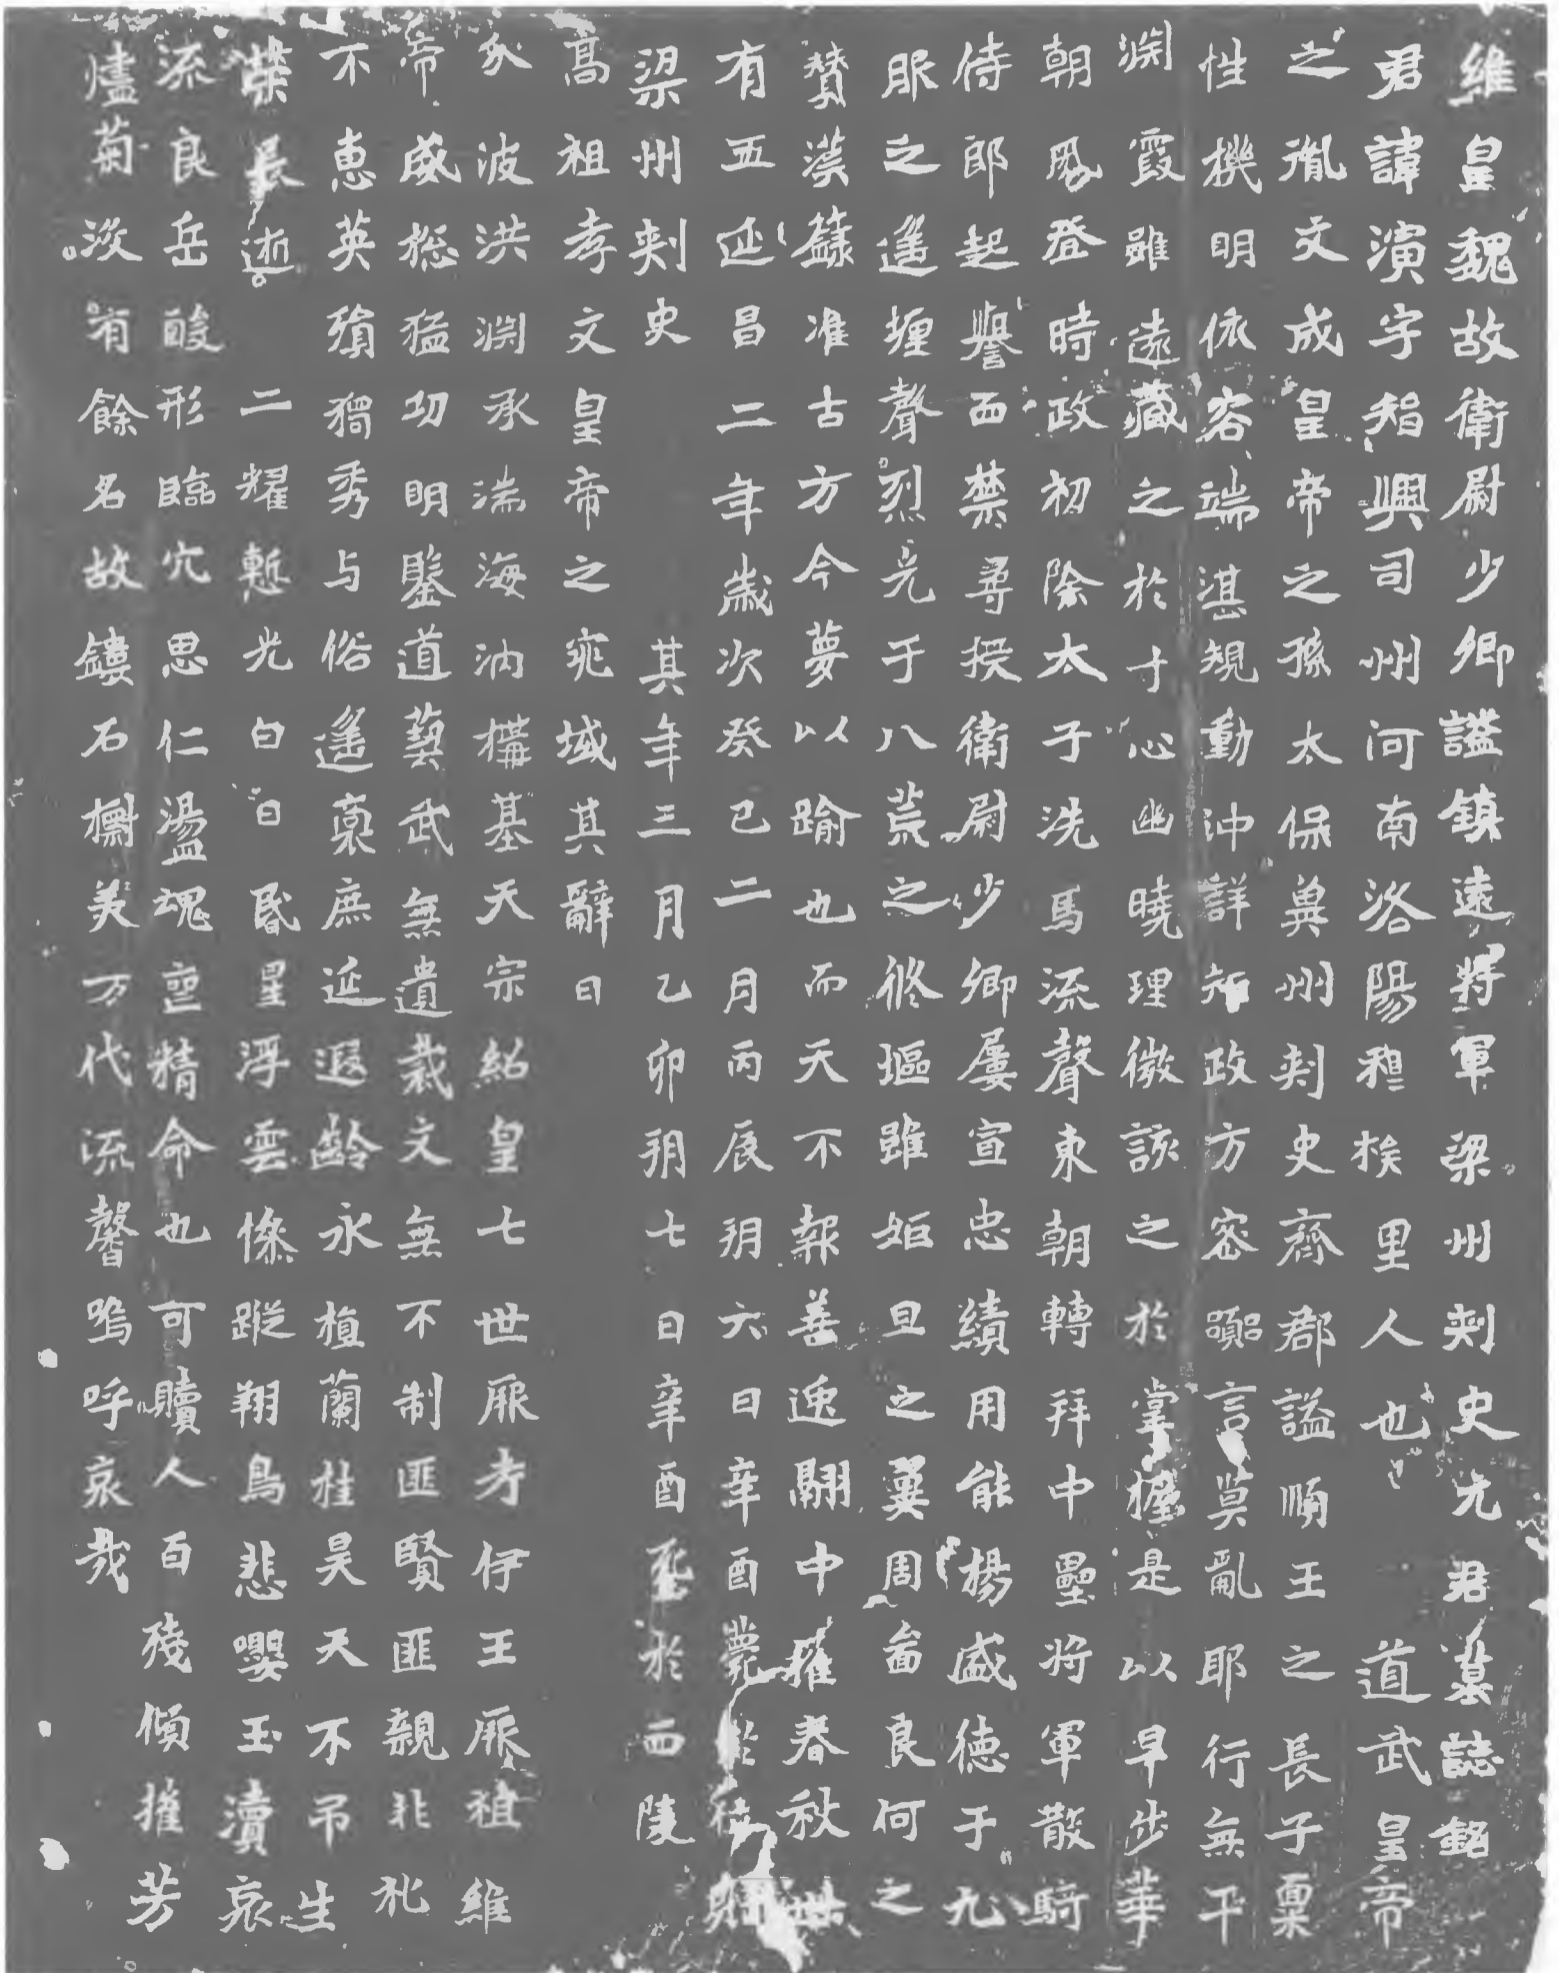 維皇魏故衛尉少卿謚鎮遠將軍梁州刺史元君墓誌銘
君諱演字智興司州河南洛陽穆族里人也道武皇帝
之胤文成皇帝之孫太保冀州刺史齊郡謚順王之長子稟
性機明依容端湛規動沖詳知政方密嘿言莫亂耶行無干
淵霞雖遠藏之於寸心幽曉理微該之於掌握是以早步華
朝夙登時政初除太子洗馬流聲東朝轉拜中壘將軍散騎
侍郎起譽西禁尋授衛尉少卿屢宣忠績用能楊盛德于九
服之遥㙻聲烈光于八荒之修堰雖姬旦之翼周畝良何之
贊漢蘇准古方今蔑以踰也而天不報善逸翮中摧春秋卅
有五延昌二年歲次癸巳二月丙辰朔六日辛酉薨於第賜
梁州刺史其年三月乙卯朔七日辛酉窆於西陵
高祖孝文皇帝之兆域其辭曰
秋波洪淵承湍海汭構基天宗紹皇七世厥考伊王厥祖維
帝威摠猛功明鑒道藝武無遺裁文無不制匪賢匪親非礼
不惠英殞獨秀与俗遥稟庶延遐齡永植蘭桂昊天不弔生
榮長逝二耀慙光白日昏星浮雲慘蹤翔鳥悲嚶玉瀆哀
流良岳酸形臨穴思仁蕩魂喪精命也可贖人百殘傾摧芳
燼菊淡有餘名故鏤石櫥美万代流馨嗚呼哀哉